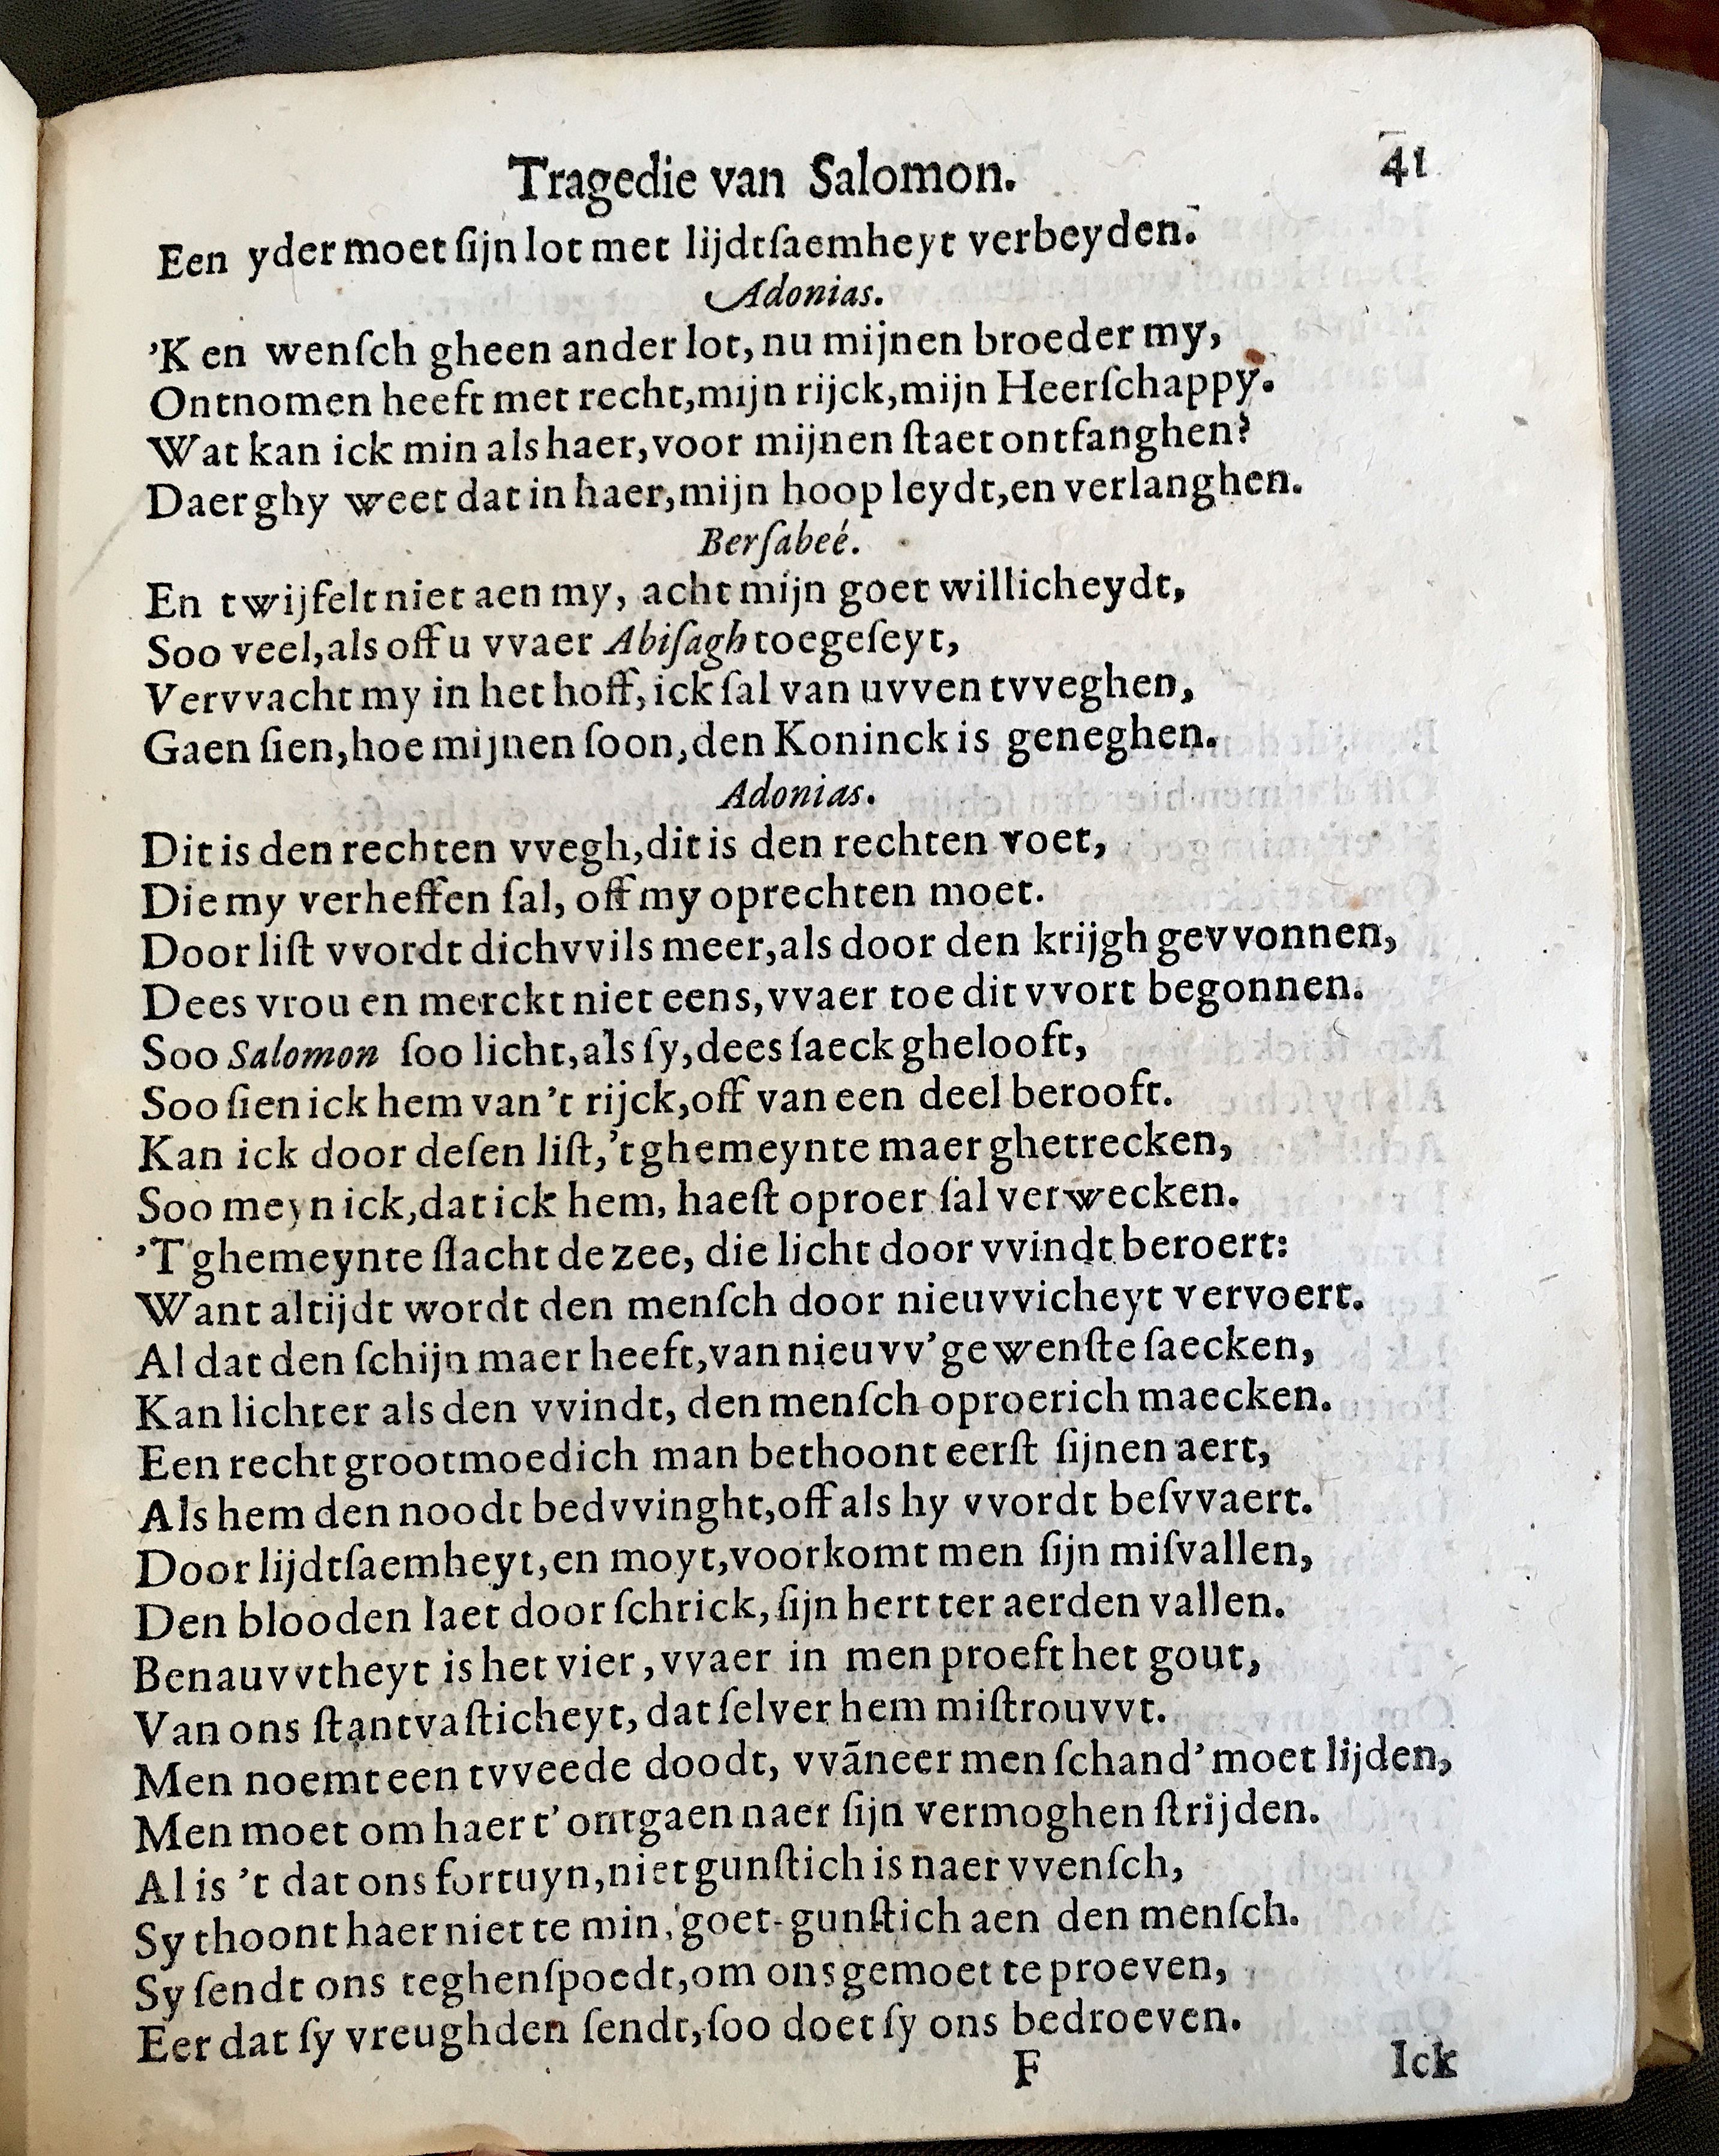 Tragedie van Salomon. 41
Een yder moet ſijn lot met lijdtſaemheyt verbeyden.
Adonias.
'K en wenſch gheen ander lot, nu mijnen broeder my,
Ontnomen heeft met recht,mijn rijck,mijn Heerſchappy.
Wat kan ick min als haer,voor mijnen ſtaet ontfanghen?
Daer ghy weet dat in haer,mijn hoop leydt,en verlanghen.
Berſabeé.
En twijfelt niet aen my, acht mijn goet willicheydt,
Soo veel,als off u vvaer Abiſagh toegeſeyt,
Vervvacht my in het hoff, ick ſal van uvven tvveghen,
Gaen ſien,hoe mijnen ſoon,den Koninck is geneghen.
Adonias.
Dit is den rechten vvegh,dit is den rechten voet,
Die my verheffen ſal, off my oprechten moet.
Door liſt vvordt dichvvils meer,als door den krijgh gevvonnen,
Dees vrou en merckt niet eens,vvaer toe dit vvort begonnen.
Soo Salomon ſoo licht,als ſy,dees ſaeck ghelooft,
Soo ſien ick hem van't rijck,off van een deel berooft.
Kan ick door deſen liſt,'t ghemeynte maer ghetrecken,
Soo meyn ick,dat ick hem, haeſt oproer ſal verwecken.
'T ghemeynte ſlacht de zee, die licht door vvindt beroert:
Want altijdt wordt den menſch door nieuvvicheyt vervoert.
Al dat den ſchijn maer heeft,van nieuvv' gewenſte ſaecken,
Kan lichter als den vvindt, den menſch oproerich maecken.
Een recht grootmoedich man bethoont eerſt ſijnen aert,
Als hem den noodt bedvvinght,off als hy vvordt beſvvaert.
Door lijdtſaemheyt,en moyt,voorkomt men ſijn miſvallen,
Den blooden laet door ſchrick, ſijn hert ter aerden vallen.
Benauvvtheyt is het vier, vvaer in men proeft het gout,
Van ons ſtantvaſticheyt, dat ſelver hem miſtrouvvt.
Men noemt een tvveede doodt, vvāneer men ſchand' moet lijden,
Men moet om haer t'ontgaen naer ſijn vermoghen ſtrijden.
Al is 't dat ons fortuyn,niet gunſtich is naer vvenſch,
Sy thoont haer niet te min,'goet-gunſtich aen den menſch.
Sy ſendt ons teghenſpoedt,om ons gemoet te proeven,
Eer dat ſy vreughden ſendt,ſoo doet ſy ons bedroeven.
F Ick